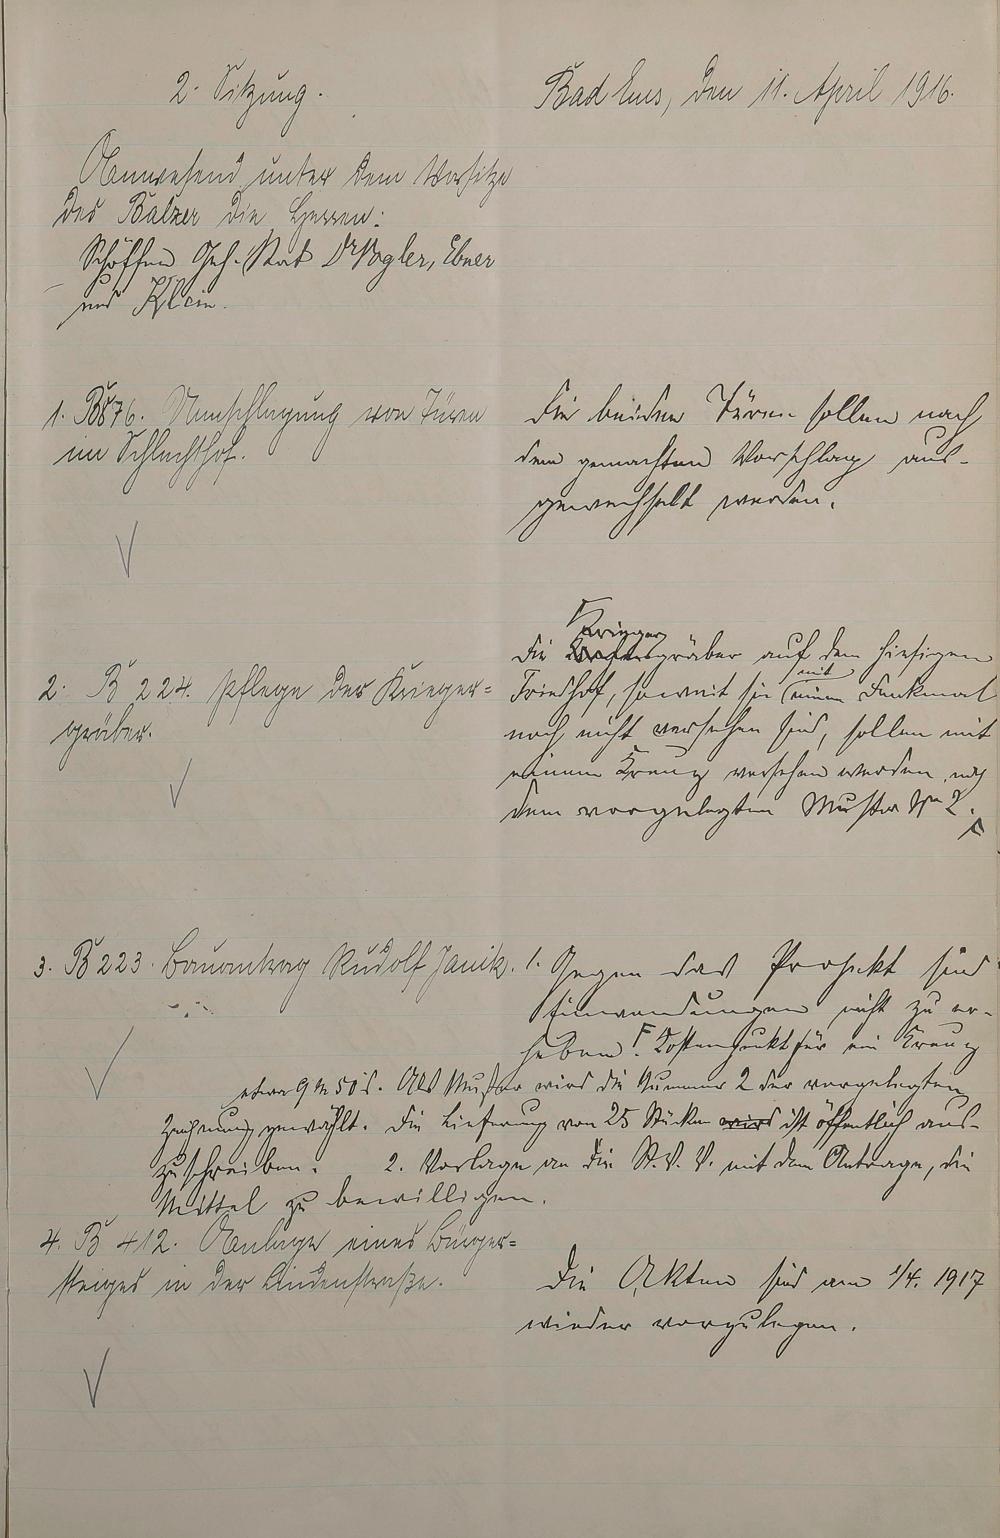 2. Sitzung.
Bad Ems, den 11. April 1916.
Anwesend unter dem Vorsitze
des Balzer die Herren:
Schöffen Geh. Rat Dr Vogler, Ebner
und Klein.
1. B 876. Umschlagung von Türen
im Schlachthof.
Die beiden Türen sollen nach
dem gemachten Vorschlag aus-
gewechselt werden.
2. B 224. Pflege der Krieger=
gräber.
Krieger
Die gräber auf dem hiesigen
mit
Friedhof, soweit sie einem Denkmal
noch nicht versehen sind, sollen mit
einem Kreuz versehen werden nach
dem vorgelegten Muster No 2.
3. B 223. Bauantrag Rudolf Janik.
1. Gegen das Projekt sind
Einwendungen nicht zu er-
heben.
F Kostenpunkt für ein Kreuz
etwa 9 M 50 S. Als Muster wird die Nummer 2 der vorgelegten
Zeichnung gewählt. Die Lieferung von 25 Stücken wird ist öffentlich aus-
zuschreiben. 2. Vorlage an die St. V. V. mit dem Antrage, die
Mittel zu bewilligen.
4. B 412. Anlage eines Bürger=
steiges in der Lindenstraße.
Die Akten sind am 1/4. 1917
wieder vorzulegen.